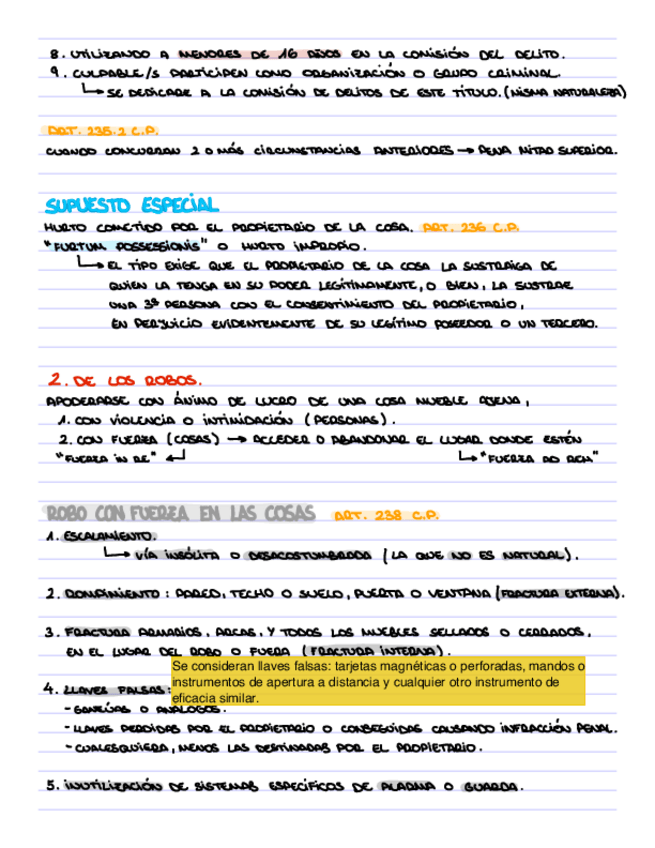 8. UTILIZANDO A MENORES DE 16 AÑOS EN LA COMISIÓN DEL DELITO.
9. CULPABLE/S PARTICIPEN COMO ORGANIZACIÓN O GRUPO CRIMINAL.
↳ SE DEDICARE A LA COMISIÓN DE DELITOS DE ESTE TÍTULO. (MISMA NATURALEZA)
ART. 235.2 C.P.
CUANDO CONCURRAN 2 O MÁS CIRCUNSTANCIAS ANTERIORES → PENA MITAD SUPERIOR.
SUPUESTO ESPECIAL
HURTO COMETIDO POR EL PROPIETARIO DE LA COSA. ART. 236 C.P.
"FURTUM POSSESSIONIS" O HURTO IMPROPIO.
↳ EL TIPO EXIGE QUE EL PROPIETARIO DE LA COSA LA SUSTRAIGA DE
QUIEN LA TENGA EN SU PODER LEGÍTIMAMENTE, O BIEN, LA SUSTRAE
UNA 3ª PERSONA CON EL CONSENTIMIENTO DEL PROPIETARIO,
EN PERJUICIO EVIDENTEMENTE DE SU LEGÍTIMO POSEEDOR O UN TERCERO.
2. DE LOS ROBOS.
APODERARSE CON ÁNIMO DE LUCRO DE UNA COSA MUEBLE AJENA,
1. CON VIOLENCIA O INTIMIDACIÓN (PERSONAS).
2. CON FUERZA (COSAS) → ACCEDER O ABANDONAR EL LUGAR DONDE ESTÉN
"FUERZA IN RE" ↲ ↳ "FUERZA AD REM"
ROBO CON FUERZA EN LAS COSAS ART. 238 C.P.
1. ESCALAMIENTO.
↳ VÍA INSÓLITA O DESACOSTUMBRADA (LA QUE NO ES NATURAL).
2. ROMPIMIENTO: PARED, TECHO O SUELO, PUERTA O VENTANA (FRACTURA EXTERNA).
3. FRACTURA ARMARIOS, ARCAS, Y TODOS LOS MUEBLES SELLADOS O CERRADOS,
EN EL LUGAR DEL ROBO O FUERA (FRACTURA INTERNA).
Se consideran llaves falsas: tarjetas magnéticas o perforadas, mandos o
instrumentos de apertura a distancia y cualquier otro instrumento de
eficacia similar.
4. LLAVES FALSAS:
- GANZÚAS O ANÁLOGOS.
- LLAVES PERDIDAS POR EL PROPIETARIO O CONSEGUIDAS CAUSANDO INFRACCIÓN PENAL.
- CUALESQUIERA, MENOS LAS DESTINADAS POR EL PROPIETARIO.
5. INUTILIZACIÓN DE SISTEMAS ESPECÍFICOS DE ALARMA O GUARDA.